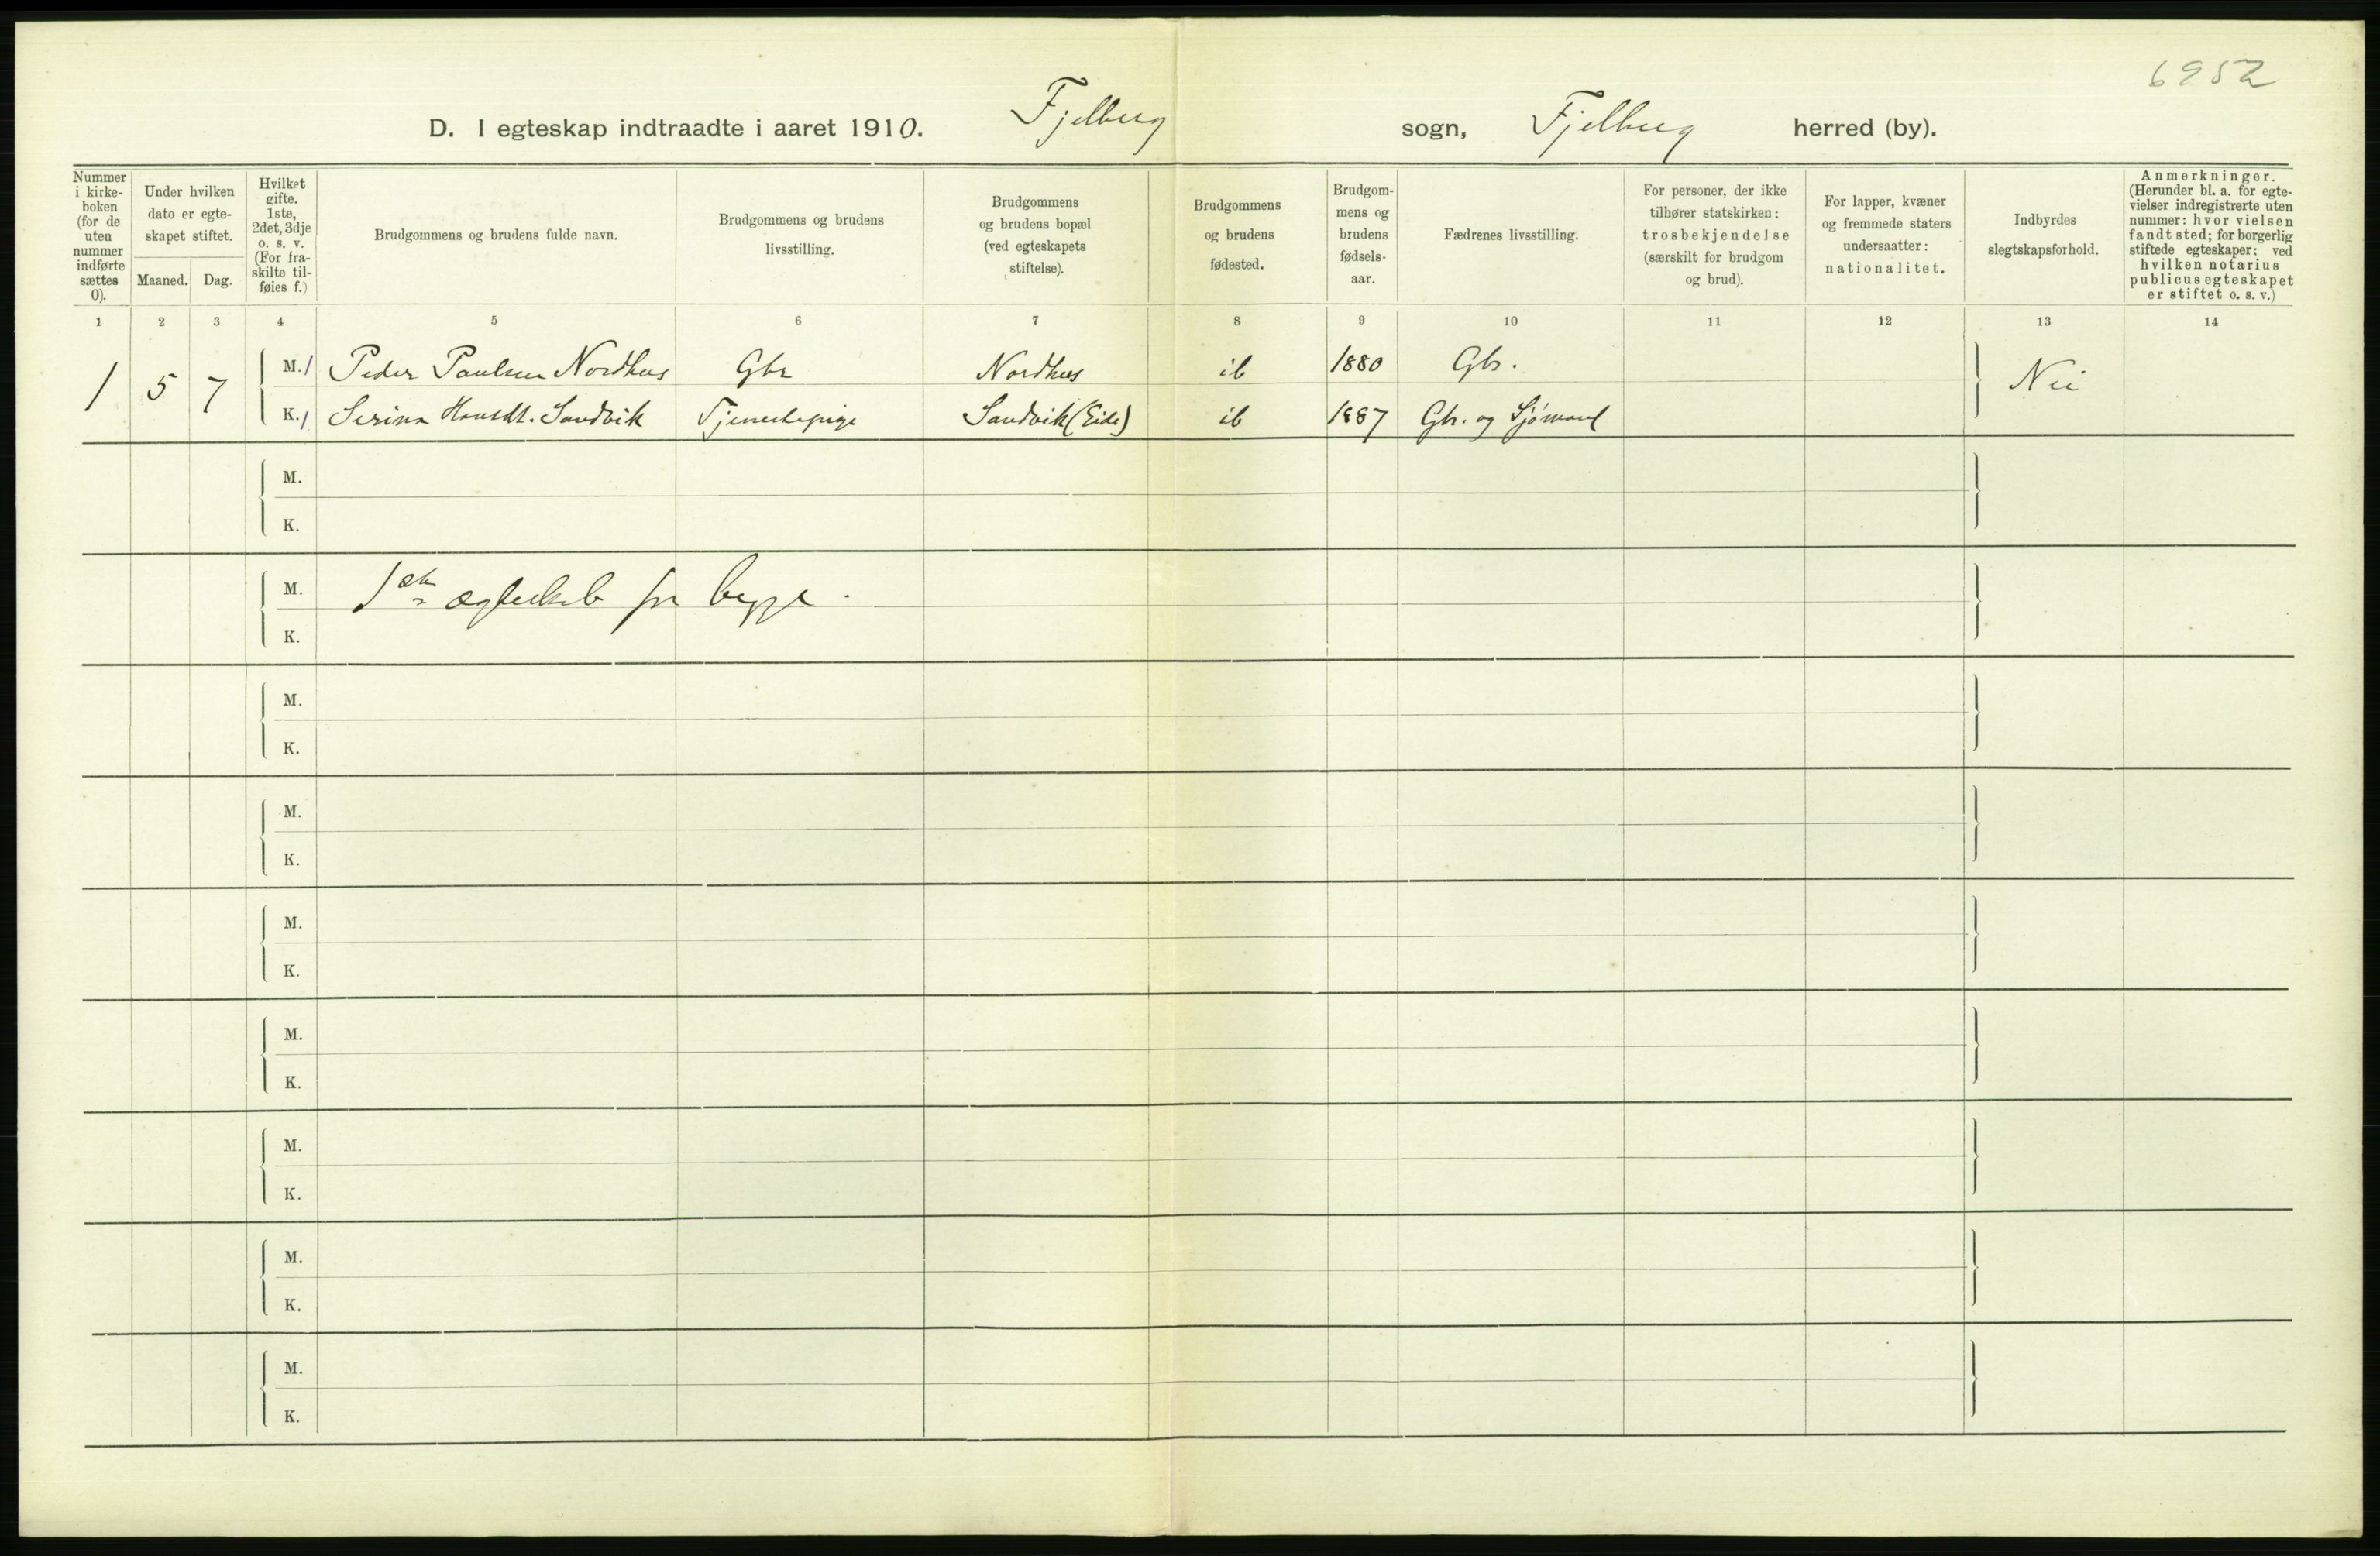 6952
D. I egteskap indtraadte i aaret 1910. Fjelberg sogn, Fjelberg herred (by).
Nummer i kirke- boken (for de uten nummer indførte sættes 0).
Under hvilken dato er egte- skapet stiftet.
Maaned. Dag.
Hvilket gifte. 1ste, 2det, 3dje o. s. v. (For fra- skilte til- føies f.)
Brudgommens og brudens fulde navn.
Brudgommens og brudens livsstilling.
Brudgommens og brudens bopæl (ved egteskapets stiftelse).
Brudgommens og brudens fødested.
Brudgom- mens og brudens fødsels- aar.
Fædrenes livsstilling.
For personer, der ikke tilhører statskirken: trosbekjendelse (særskilt for brudgom og brud).
For lapper, kvæner og fremmede staters undersaatter: nationalitet.
Indbyrdes slegtskapsforhold.
Anmerkninger. (Herunder bl. a. for egte- vielser indregistrerte uten nummer: hvor vielsen fandt sted; for borgerlig stiftede egteskaper: ved hvilken notarius publicus egteskapet er stiftet o. s. v.)
1 2 3 4 5 6 7 8 9 10 11 12 13 14
1 5 7 M. 1 Peder Paulsen Nordhus Gbr Nordhus ib 1880 Gbr. Nei
K. 1 Serina Hansdt. Sandvik Tjenestepige Sandvik (Eide) ib 1887 Gbr. og Sjømand
M.
K.
M. 1ste ægteskab for begge.
K.
M.
K.
M.
K.
M.
K.
M.
K.
M.
K.
M.
K.
M.
K.